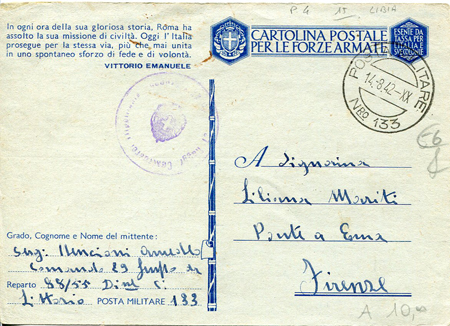 P 4 15 LIBIA
In ogni ora della sua gloriosa storia, Roma ha
assolto la sua missione di civiltà. Oggi l' Italia
prosegue per la stessa via, più che mai unita
in uno spontaneo sforzo di fede e di volontà.
VITTORIO EMANUELE
CARTOLINA POSTALE
PER LE FORZE ARMATE
ESENTE DA
TASSA PER
L'ITALIA E
POSTA MILITARE
14.8.42-XX
Nº 133
€6
A Signorina
Liliana Mariti
Ponte a Ema
Firenze
A 10,00
Grado, Cognome e Nome del mittente:
Serg.
Comando 29
Reparto 88/55 Div
Littorio POSTA MILITARE 133